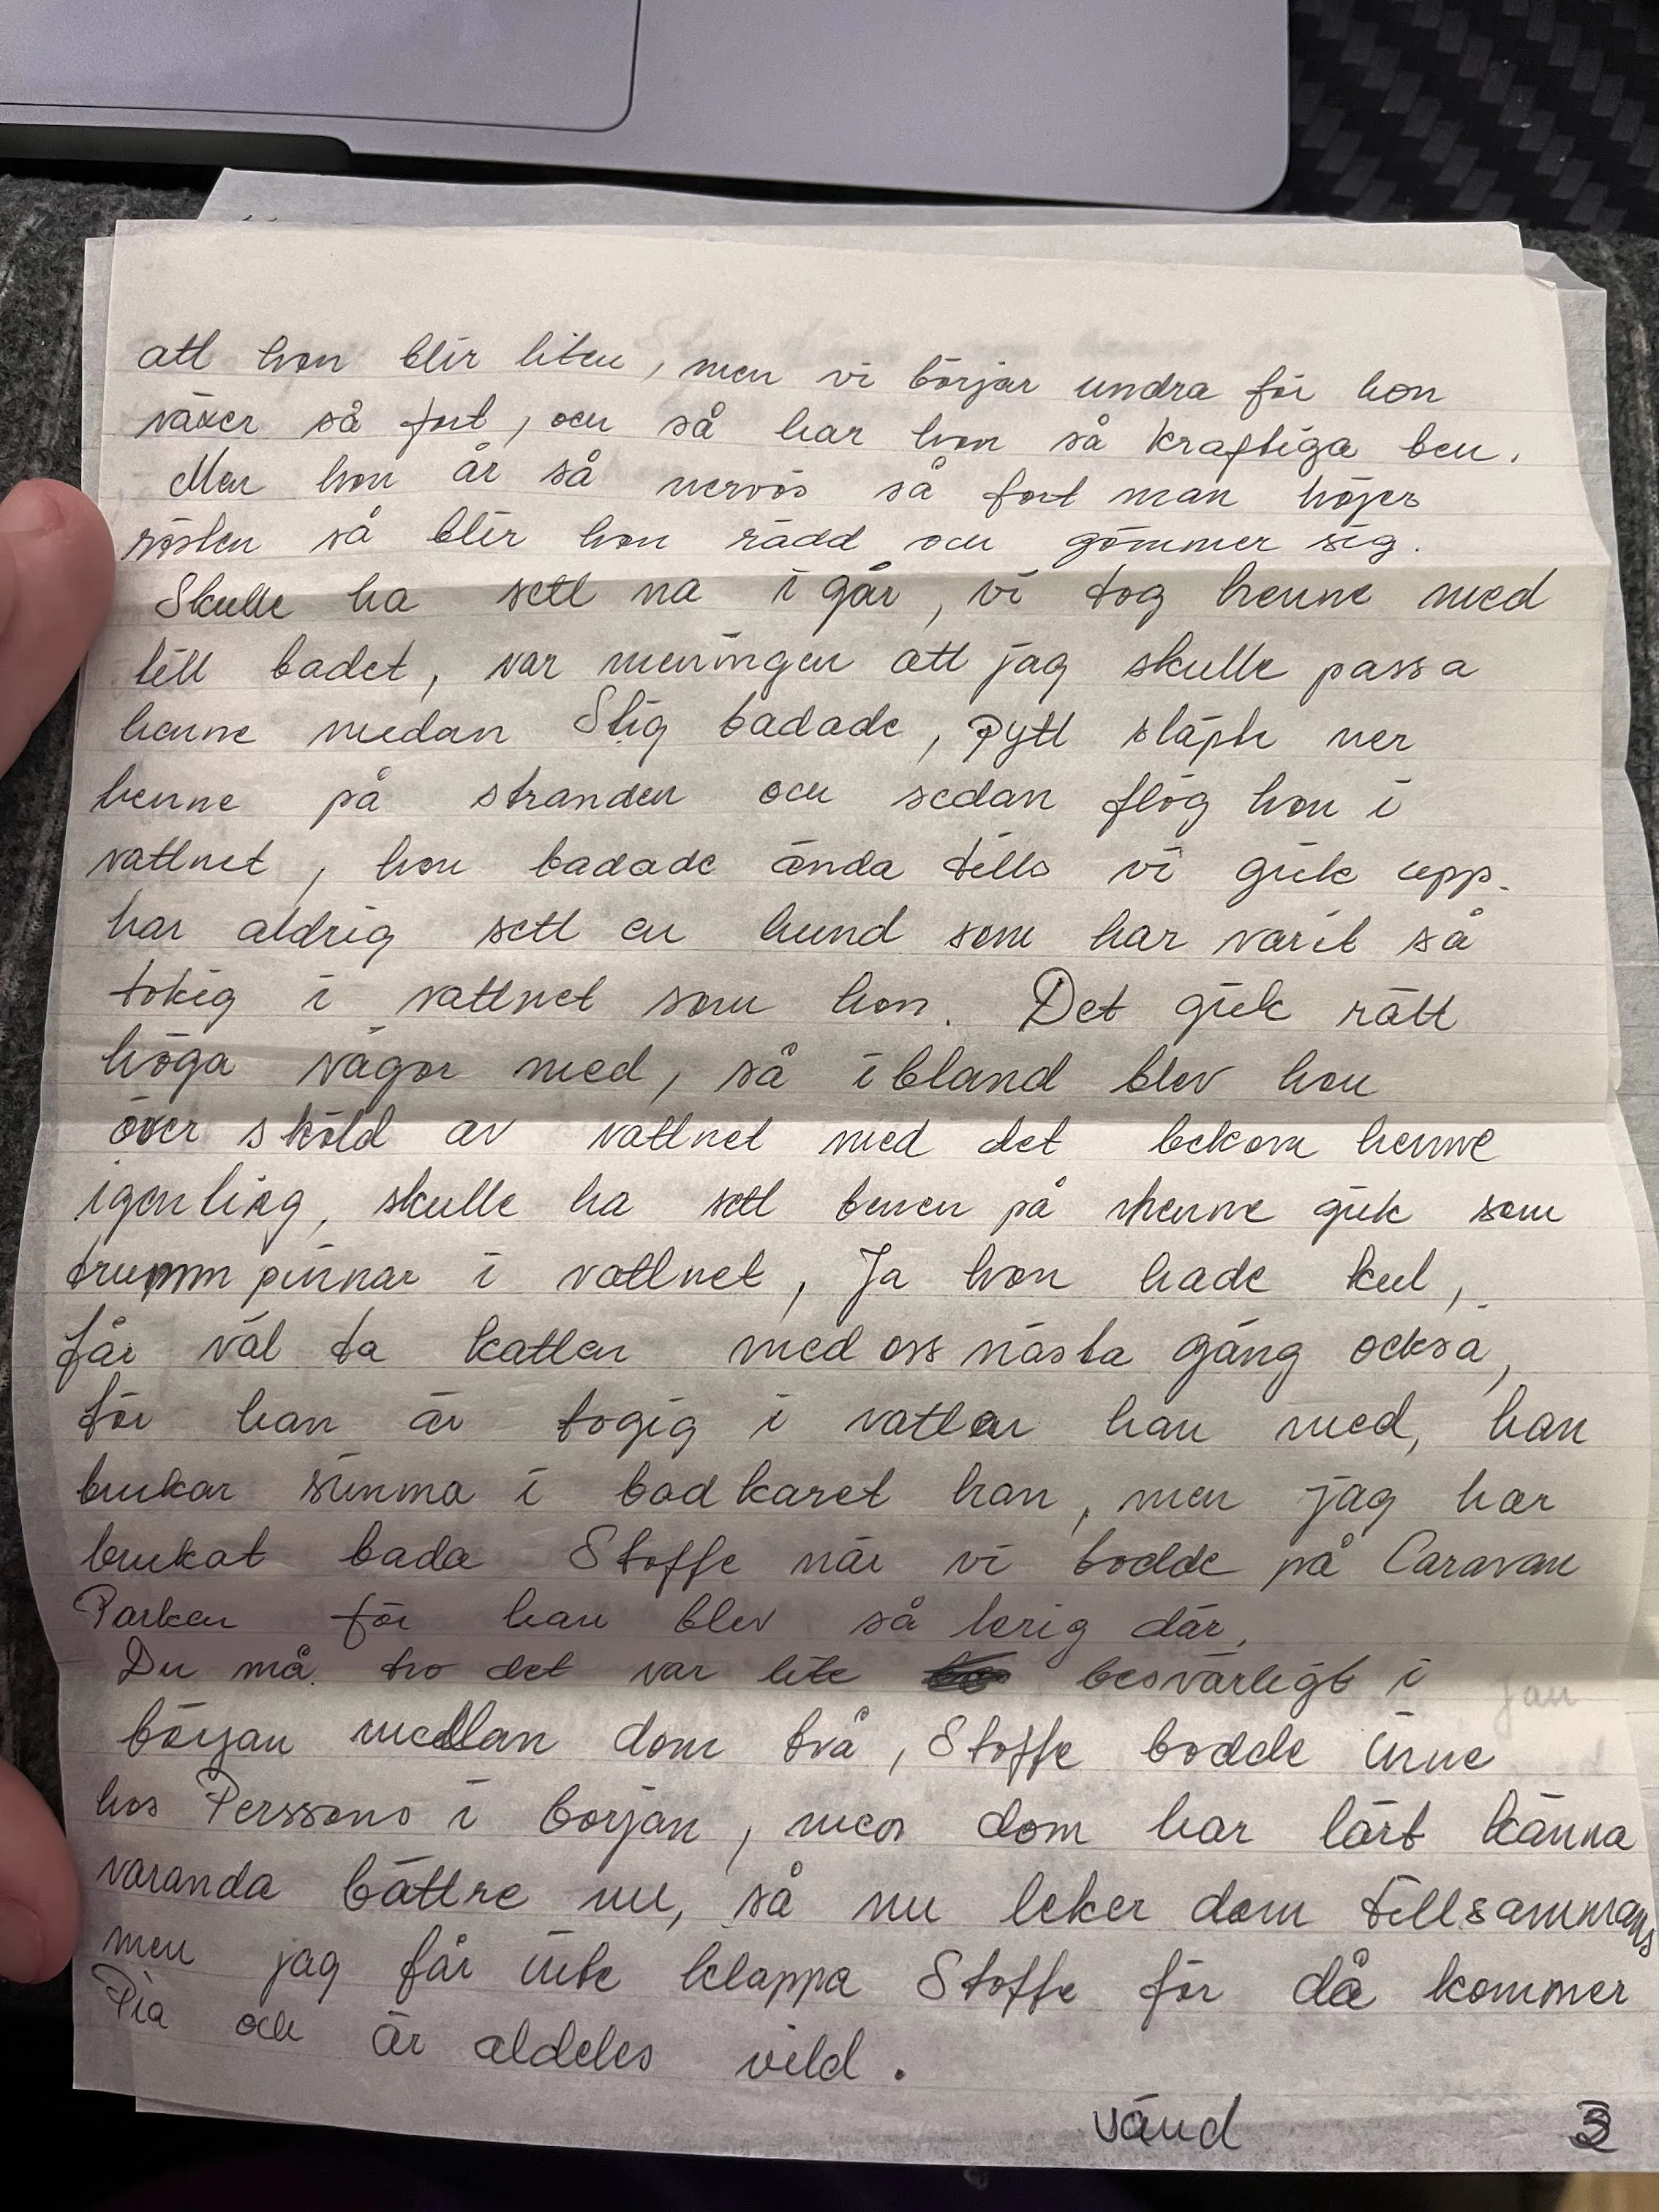 att hon blir liten, men vi börjar undra för hon
växer så fort, och så har hon så kraftiga ben.
Men hon är så nervös så fort man höjer
rösten så blir hon rädd och gömmer sig.
Skulle ha sett na i går, vi tog henne med
till badet, var meningen att jag skulle passa
henne medan Stig badade, Pytt släpte ner
henne på stranden och sedan flög hon i
vattnet, hon badade ända tills vi gick upp.
har aldrig sett en hund som har varit så
tokig i vattnet som hon. Det gick rätt
höga vågor med, så ibland blev hon
över sköld av vattnet med det bekom henne
igenling, skulle ha sett benen på henne gick som
trumm pinnar i vattnet, Ja hon hade kul,
får väl ta katten med oss nästa gång också,
för han är togig i vatten han med, han
brukar simma i bad karet han, men jag har
brukat bada Stoffe när vi bodde på Caravan
Parken för han blev så lerig där.
Du må tro det var lite besvärligt i
början mellan dom två, Stoffe bodde inne
hos Perssons i början, men dom har lärt känna
varanda bättre nu, så nu leker dom tillsammans
men jag får inte klappa Stoffe för då kommer
Pia och är aldeles vild.
vänd 3